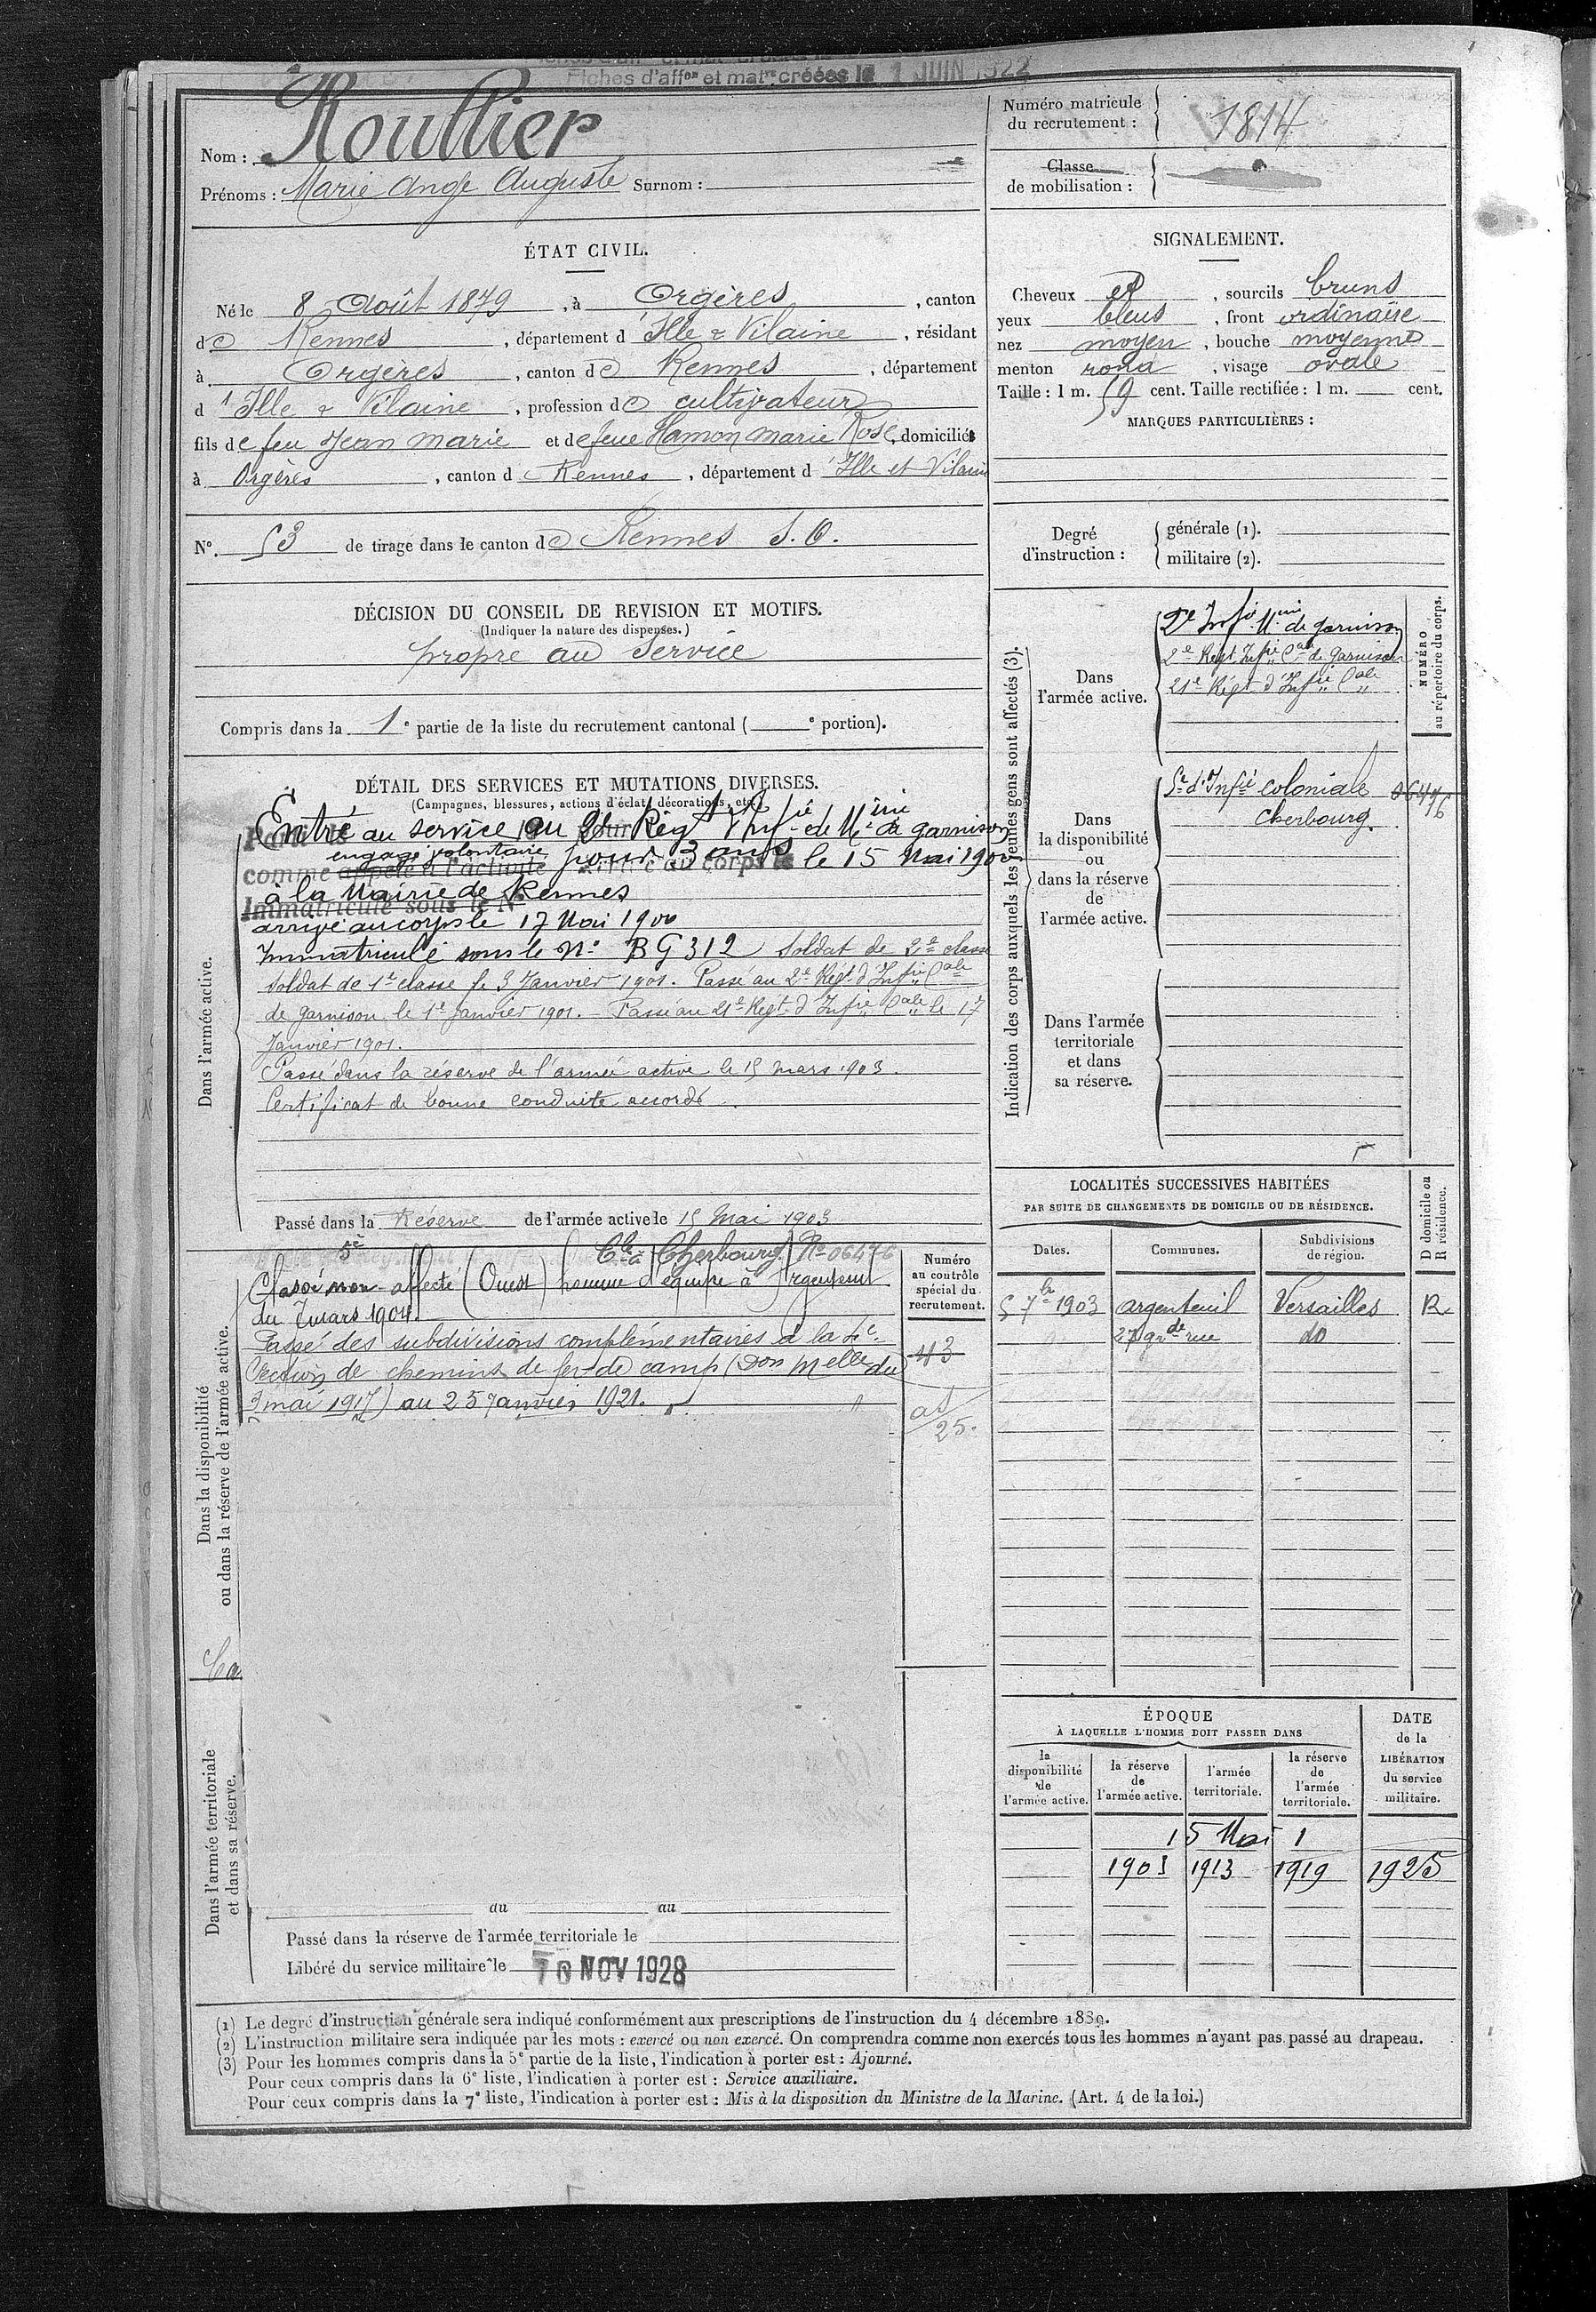 Fiches d'aff<sup>on</sup> et mat<sup>re</sup> créées le 1 JUIN 1922
Nom : Roullier
Prénoms : Marie Ange Auguste Surnom :
Numéro matricule du recrutement : 1814
Classe de mobilisation :
ÉTAT CIVIL.
Né le 8 Août 1879, à Orgères, canton
de Rennes, département d'Ille & Vilaine, résidant
à Orgères, canton de Rennes, département
d'Ille & Vilaine, profession de cultivateur
fils de feu Jean Marie et de feue Hamon Marie Rose, domiciliés
à Orgères, canton d Rennes, département d'Ille et Vilaine
N°. 53 de tirage dans le canton de Rennes S.O.
DÉCISION DU CONSEIL DE REVISION ET MOTIFS.
(Indiquer la nature des dispenses.)
propre au service
Compris dans la 1e partie de la liste du recrutement cantonal ( e portion).
SIGNALEMENT.
Cheveux et, sourcils bruns
yeux bleus, front ordinaire
nez moyen, bouche moyenne
menton rond, visage ovale
Taille : 1 m. 59 cent. Taille rectifiée : 1 m. cent.
MARQUES PARTICULIÈRES :
Degré d'instruction :
générale (1).
militaire (2).
DÉTAIL DES SERVICES ET MUTATIONS DIVERSES.
(Campagnes, blessures, actions d'éclat, décorations, etc.)
Dans l'armée active.
Entré au service au 2e Régt d'Infie de Mine de garnison
comme appelé à l'activité
engagé volontaire pour 3 ans le 15 Mai 1900
à la Mairie de Rennes
Immatriculé sous le N°
arrivé au corps le 17 Mai 1900
Immatriculé sous le N° BG 312 Soldat de 2e classe
Soldat de 1e classe le 3 Janvier 1901. Passé au 2e Régt d'Infie Cale
de garnison le 1e Janvier 1901. – Passé au 21e Régt d'Infie Cale le 17
Janvier 1901.
Passé dans la réserve de l'armée active le 15 mars 1903.
Certificat de bonne conduite accordé.
Passé dans la Réserve de l'armée active le 15 Mai 1903
Dans la disponibilité
ou dans la réserve de l'armée active.
5e Cle à Cherbourg N° 06476
Classé non-affecté (Ouest) homme d'équipe à Argenteuil
du 7 mars 1904.
Passé des subdivisions complémentaires à la
Section de chemins de fer de camp (Don Melle du
3 mai 1917) au 25 Janvier 1921.
Numéro au contrôle spécial du recrutement.
43
as 25.
Indication des corps auxquels les jeunes gens sont affectés (3).
NUMÉRO au répertoire du corps.
Dans l'armée active.
2e Infie Mine de garnison
2e Régt Infie Cale de garnison
21e Régt d'Infie Cale
Dans la disponibilité ou dans la réserve de l'armée active.
5e d'Infie coloniale 06476
Cherbourg.
Dans l'armée territoriale et dans sa réserve.
LOCALITÉS SUCCESSIVES HABITÉES
PAR SUITE DE CHANGEMENTS DE DOMICILE OU DE RÉSIDENCE.
Dates. Communes. Subdivisions de région. D domicile ou R résidence.
5 7bre 1903 Argenteuil Versailles R
27 gde rue do
Dans l'armée territoriale
et dans sa réserve.
du au
Passé dans la réserve de l'armée territoriale le
Libéré du service militaire le 10 NOV 1928
ÉPOQUE
À LAQUELLE L'HOMME DOIT PASSER DANS
la disponibilité de l'armée active. la réserve de l'armée active. l'armée territoriale. la réserve de l'armée territoriale.
DATE de la LIBÉRATION du service militaire.
15 Mai
1903 1913 1919 1925
(1) Le degré d'instruction générale sera indiqué conformément aux prescriptions de l'instruction du 4 décembre 1889.
(2) L'instruction militaire sera indiquée par les mots : exercé ou non exercé. On comprendra comme non exercés tous les hommes n'ayant pas passé au drapeau.
(3) Pour les hommes compris dans la 5e partie de la liste, l'indication à porter est : Ajourné.
Pour ceux compris dans la 6e liste, l'indication à porter est : Service auxiliaire.
Pour ceux compris dans la 7e liste, l'indication à porter est : Mis à la disposition du Ministre de la Marine. (Art. 4 de la loi.)